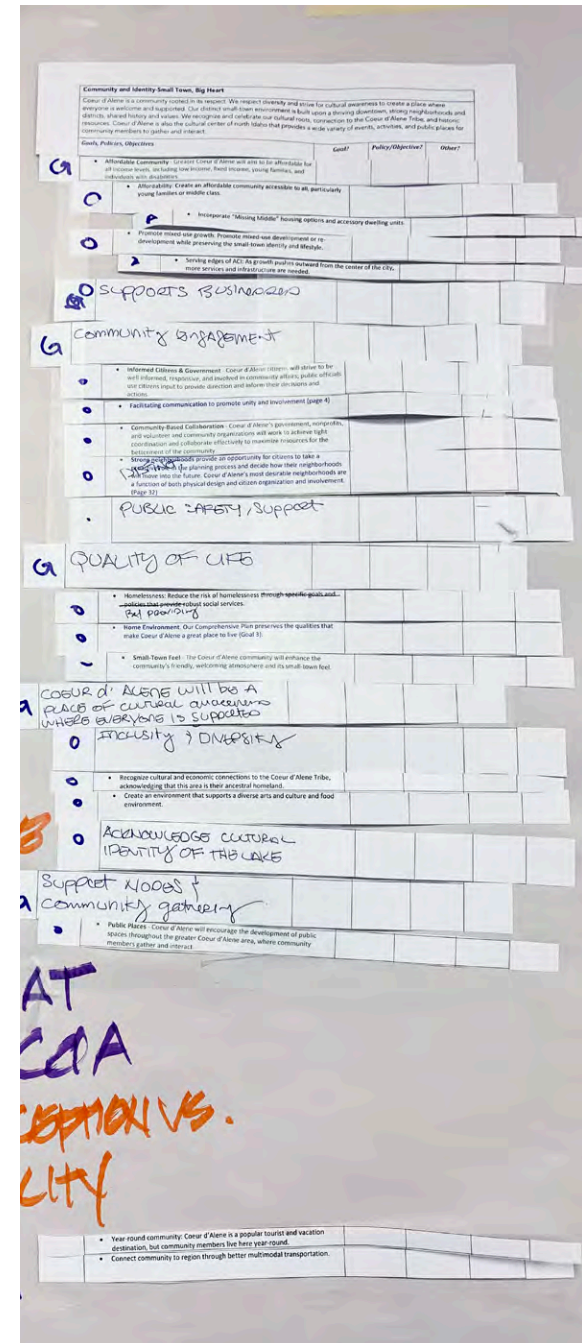 Community and Identity-Small Town, Big Heart
Coeur d'Alene is a community rooted in its respect. We respect diversity and strive for cultural awareness to create a place where
everyone is welcome and supported. Our distinct small-town environment is built upon a thriving downtown, strong neighborhoods and
districts, shared history and values. We recognize and celebrate our cultural roots, connection to the Coeur d'Alene Tribe, and historic
resources. Coeur d'Alene is also the cultural center of north Idaho that provides a wide variety of events, activities, and public places for
community members to gather and interact.
Goals, Policies, Objectives Goal? Policy/Objective? Other?
G • Affordable Community - Greater Coeur d'Alene will aim to be affordable for
all income levels, including low income, fixed income, young families, and
individuals with disabilities.
O • Affordability: Create an affordable community accessible to all, particularly
young families or middle class.
P • Incorporate "Missing Middle" housing options and accessory dwelling units
O • Promote mixed-use growth. Promote mixed-use development or re-
development while preserving the small-town identity and lifestyle.
• Serving edges of ACI: As growth pushes outward from the center of the city,
more services and infrastructure are needed.
O SUPPORTS BUSINESSES
G Community Engagement
• Informed Citizens & Government - Coeur d'Alene citizens will strive to be
well informed, responsive, and involved in community affairs; public officials
use citizens input to provide direction and inform their decisions and
actions.
• Facilitating communication to promote unity and involvement (page 4)
• Community-Based Collaboration - Coeur d'Alene's government, nonprofits,
and volunteer and community organizations will work to achieve tight
coordination and collaborate effectively to maximize resources for the
betterment of the community
O • Strong neighborhoods provide an opportunity for citizens to take a
in the planning process and decide how their neighborhoods
will move into the future. Coeur d'Alene's most desirable neighborhoods are
a function of both physical design and citizen organization and involvement.
(Page 32)
PUBLIC SAFETY, Support
G QUALITY OF LIFE
• Homelessness: Reduce the risk of homelessness through specific goals and
policies that provide robust social services.
By providing
• Home Environment. Our Comprehensive Plan preserves the qualities that
make Coeur d'Alene a great place to live (Goal 3)
• Small-Town Feel - The Coeur d'Alene community will enhance the
community's friendly, welcoming atmosphere and its small-town feel.
COEUR d' ALENE WILL BE A
PLACE OF cultural awareness
WHERE EVERYONE IS SUPPORTED
O INCLUSITY & DIVERSITY
O • Recognize cultural and economic connections to the Coeur d'Alene Tribe,
acknowledging that this area is their ancestral homeland.
O • Create an environment that supports a diverse arts and culture and food
environment.
O ACKNOWLEDGE CULTURAL
IDENTITY OF THE LAKE
Support NODES &
Community gathering
• Public Places - Coeur d'Alene will encourage the development of public
spaces throughout the greater Coeur d'Alene area, where community
members gather and interact.
AT
CDA
CEPTION VS.
LITY
• Year-round community: Coeur d'Alene is a popular tourist and vacation
destination, but community members live here year-round.
• Connect community to region through better multimodal transportation.